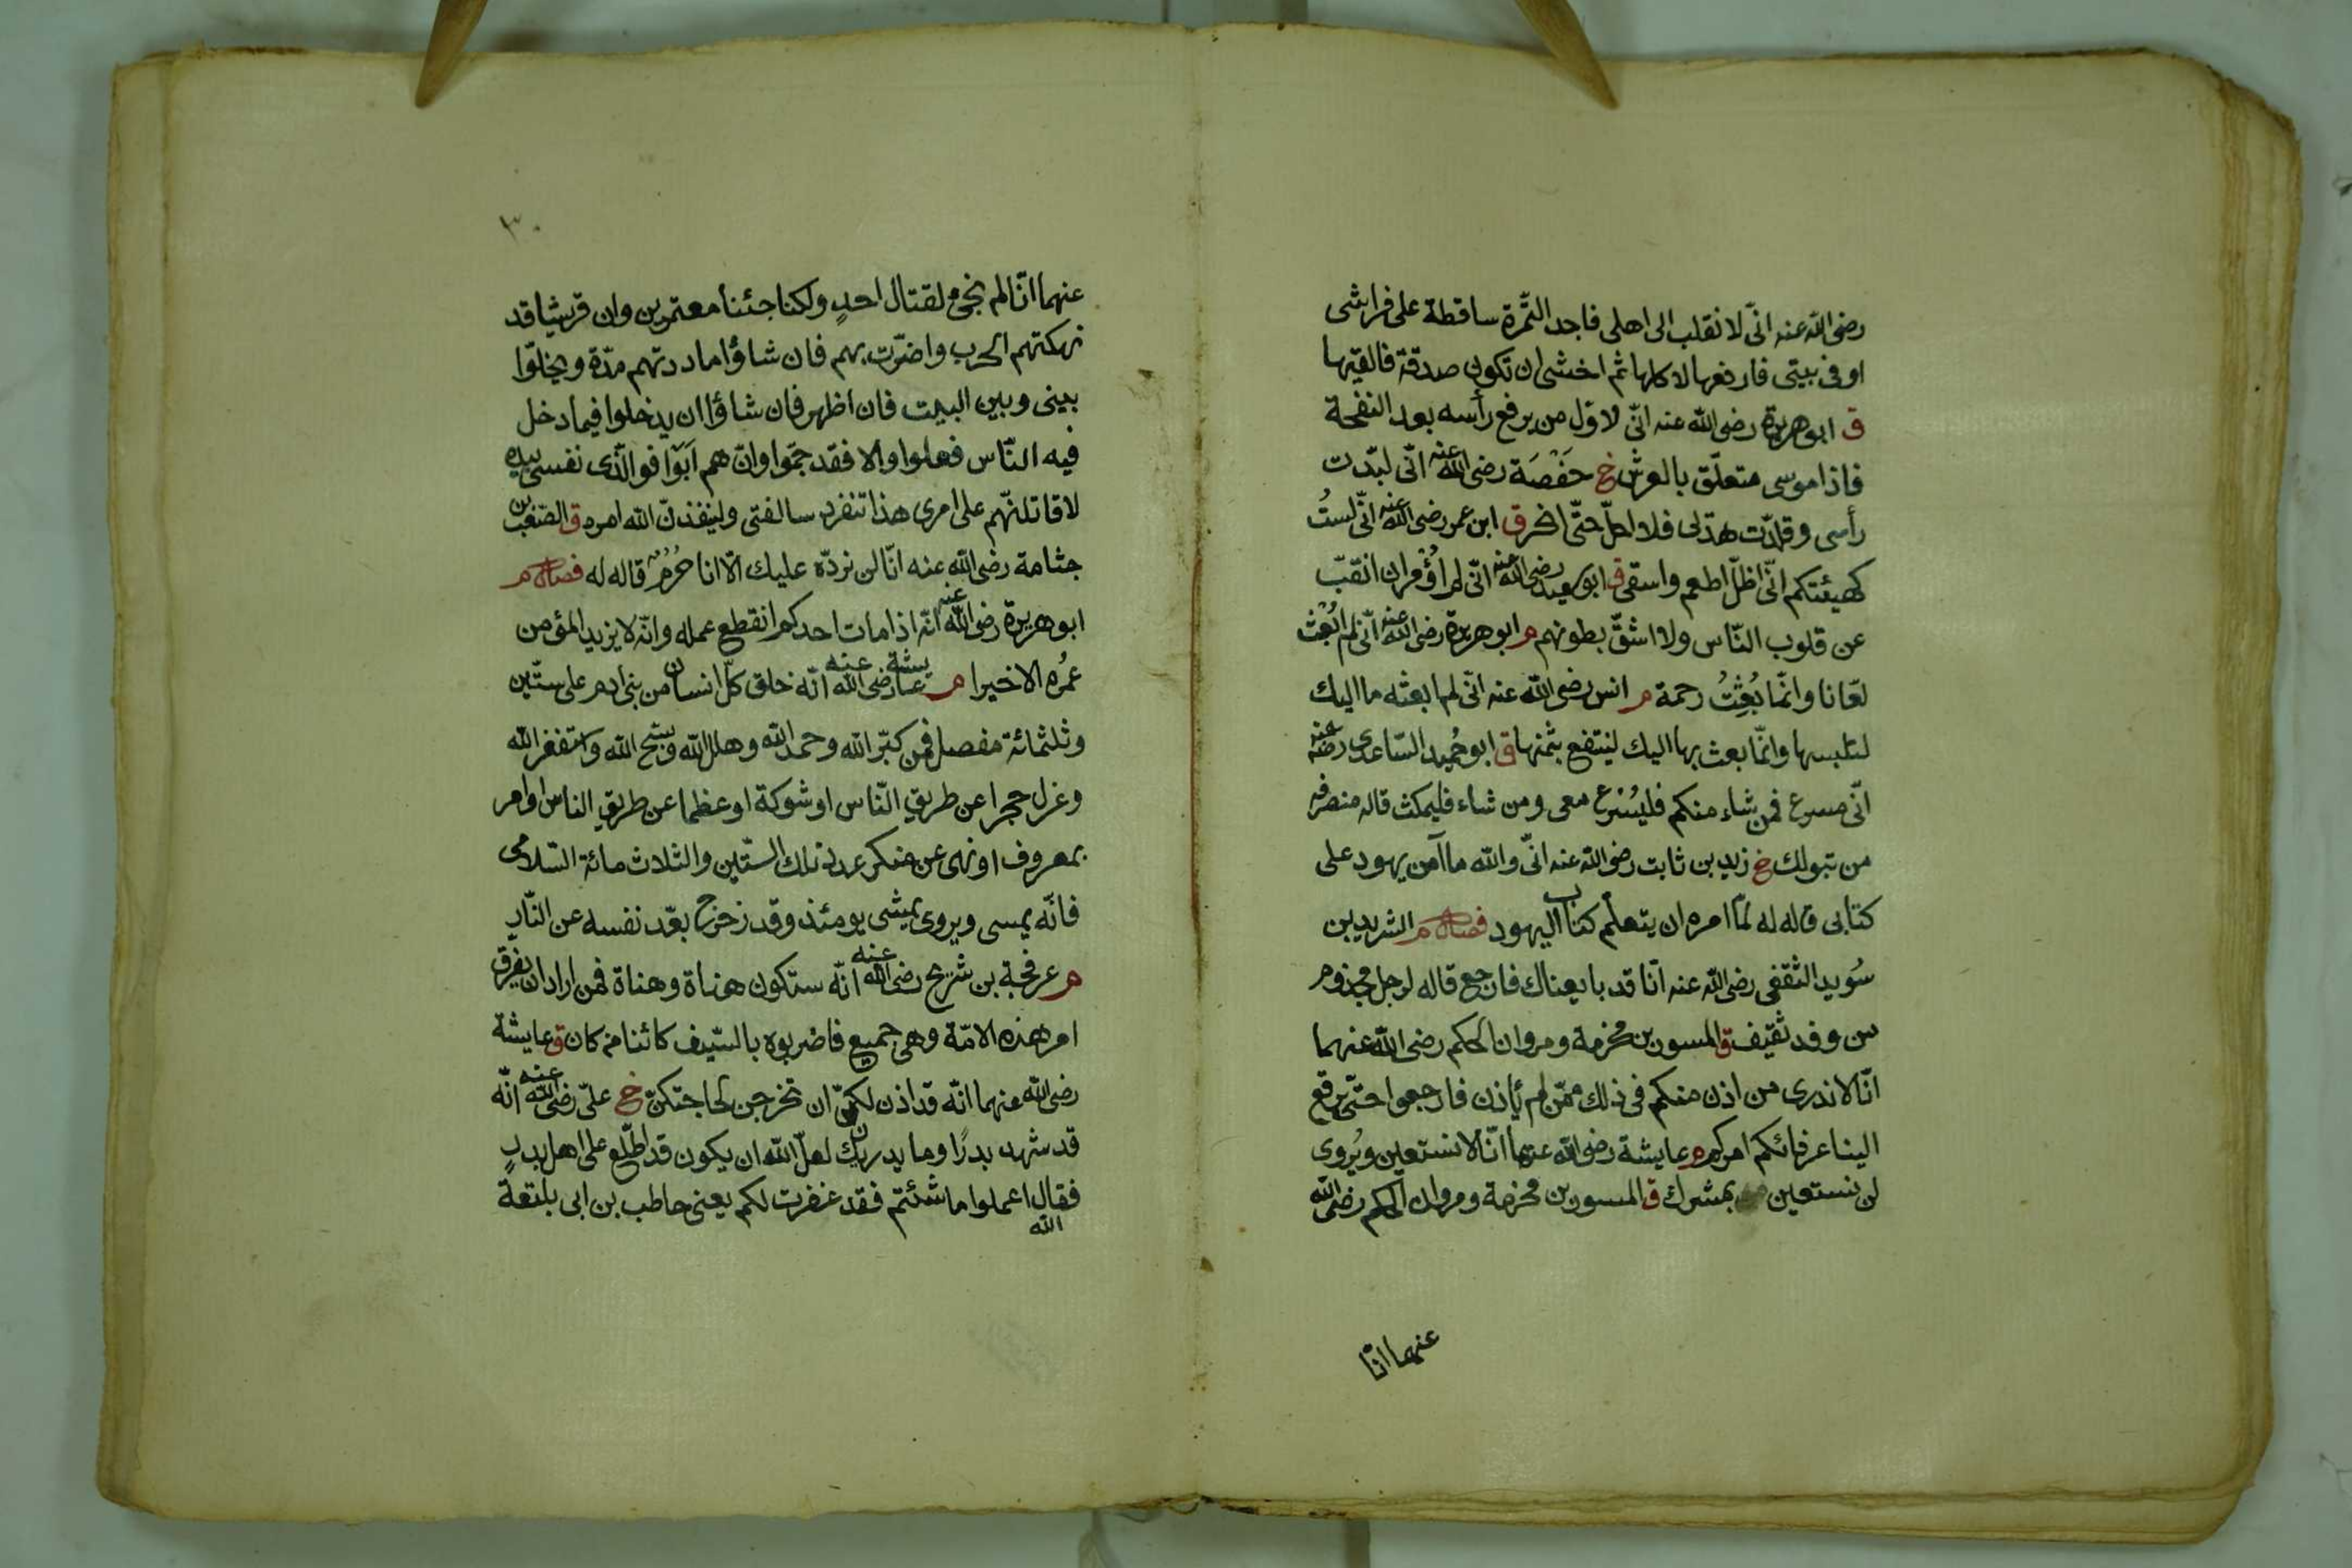 رضى الله عنه انّى لانقلب الى اهلى فاجد التّمرة ساقطة على فراشى
او فى بيتى فارفعها لاكلها ثم اخشى ان تكون صدقة فالقيها
ق ابو هريرة رضى الله عنه انّى لاوّل من يرفع رأسه بعد النفخة
فاذا موسى متعلّق بالعرش خ حَفْصَة رضى الله عنه انّى لبّدت
رأسى وقلدّت هدى فلا احلّ حتّى انحر ق ابن عمر رضى الله عنه انّى لستُ
كهيئتكم انّى اظلّ اطعم واسقى ق ابو سعيد رضى الله عنه انّى لم اُوْمر ان انقب
عن قلوب النّاس ولا اشقّ بطونهم م ابو هريرة رضى الله عنه انّى لم ابُعْث
لعّانا وانّما بُعِثْتُ رحمة م انس رضى الله عنه انّى لم ابعثه ما اليك
لتلبسها وانّما بعث بها اليك لينتفع بثمنها ق ابو حُميد السّاعدى رضى عنه
انّى مسرع فمن شاء منكم فليُسْرع معى ومن شاء فليمكث قاله منصرفه
من تبوك خ زيد بن ثابت رضى الله عنه انّى والله ما آمن يهود على
كتابى قاله له لمّا امره ان يتعلّم كتاب اليهود فصل م الشريد بن
سُويد الثقفى رضى الله عنه انّا قد بايعناك فارجع قاله لرجل مجذوم
من وفد ثقيف ق المسور بن مخرمة ومروان الحكم رضى الله عنهما
انّا لا ندرى من اذن منكم فى ذلك ممّن لم يأذن فارجعوا حتّى يرفع
الينا عرفائكم امركم م عايشة رضى الله عنهما انّا لا نستعين ويُروى
لن نستعين بمشرك ق المسور بن مخرمة ومروان الحكم رضى الله
عنهما انّا
٣٠
عنهما انّا لم نجئ لقتال احدٍ ولكنا جئنا معتمرين وان قريشا قد
نهكتهم الحرب واضرّت بهم فان شاؤا ماددتهم مدّة ويخلوّا
بينى وبين البيت فان اظهر فان شاؤا ان يدخلوا فيما دخل
فيه النّاس فعلوا والا فقد جمّوا وانّ هم اَبَوْا فوالّذى نفسى بيده
لاقاتلنّهم على امرى هذا تنفرد سالفتى ولينفذنّ الله امره ق الصّعب بن
جثامة رضى الله عنه انّا لن نردّه عليك الّا انا حُرُم قاله له فصل م
ابو هريرة رضى الله عنه انّه اذا مات احدكم انقطع عمله وانّه لا يزيد المؤمن
عمُره الا خيرا م عايشة رضى الله عنه انّه خلق كلّ انسان من بنى ادم على ستّين
وثلثمائة مفصل فمن كبّر الله وحمد الله وهلل الله وسبّح الله واستغفر الله
وعزل حجرا عن طريق النّاس او شوكة او عظما عن طريق الناس او امر
بمعروف او نهى عن منكر عدد تلك السّتين والثلاث مائة السّلامى
فانّه يمسى ويروى يمشى يومئذ وقد زحزح بعّد نفسه عن النّار
م عرفجة بن شريح رضى الله عنه انّه ستكون هناة وهناة فمن اراد ان يفرق
امر هذه الامّة وهى جميع فاضربوه بالسّيف كائنا من كان ق عايشة
رضى الله عنهما انّه قد اذن لكنّ ان تخرجن لحاجتكنّ خ علىّ رضى الله عنه انّه
قد شهد بدرًا وما يدريك لعلّ الله ان يكون قد اطّلع على اهل بدرٍ
فقال اعملوا ما شئتم فقد غفرت لكم يعنى حاطب بن ابى بلتعة
الله